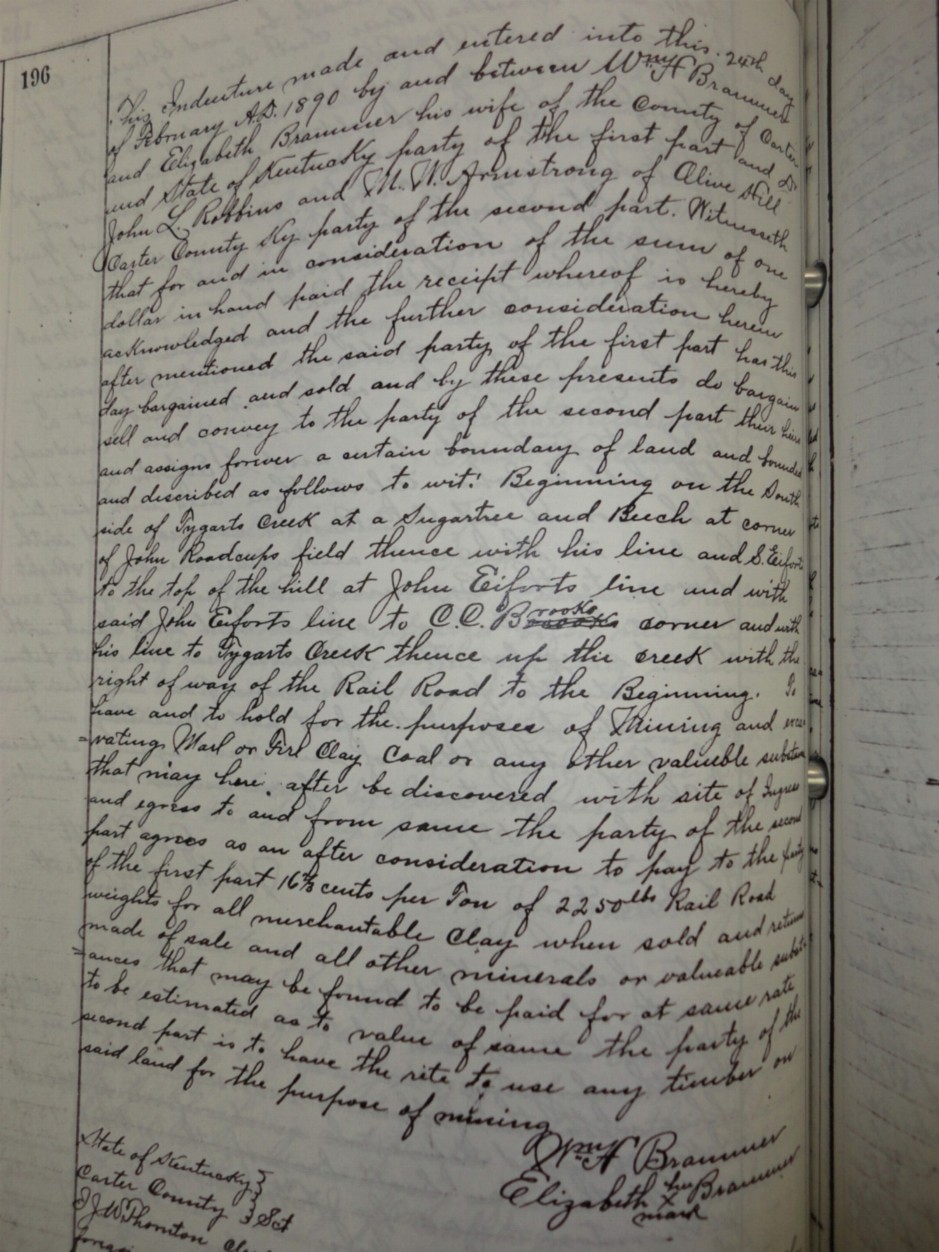 196
This Indenture made and entered into this 24th day
of February A.D. 1890 by and between Wm H Brammer
and Elizabeth Brammer his wife of the County of Carter
and State of Kentucky party of the first part and
John L. Robbins and M. W. Armstrong of Olive Hill
Carter County Ky party of the second part. Witnesseth
that for and in consideration of the sum of one
dollar in hand paid the receipt whereof is hereby
acknowledged and the further consideration herein
after mentioned the said party of the first part has this
day bargained and sold and by these presents do bargain
sell and convey to the party of the second part their heirs
and assigns forever a certain boundary of land and bounded
and described as follows to wit: Beginning on the South
side of Tygarts Creek at a Sugartree and Beech at corner
of John Roadcups field thence with his line and S. Eiforts
to the top of the hill at John Eiforts line and with
said John Eiforts line to C.C. Brooks corner and with
his line to Tygarts Creek thence up the creek with the
right of way of the Rail Road to the Beginning. To
have and to hold for the purposes of Mining and exca
=vating Marl or Fire Clay Coal or any other valuable substan
that may here after be discovered with site of Ingress
and egress to and from same the party of the second
part agrees as an after consideration to pay to the party
of the first part 16⅔ cents per Ton of 2250 lbs Rail Road
weights for all merchantable Clay when sold and returns
made of sale and all other minerals or valueable subst
=ances that may be found to be paid for at same rate
to be estimated as to value of same the party of the
second part is to have the rite to use any timber on
said land for the purpose of mining
Wm H Brammer
Elizabeth her x mark Brammer
State of Kentucky }
Carter County } Sct
I J W Thornton Clerk